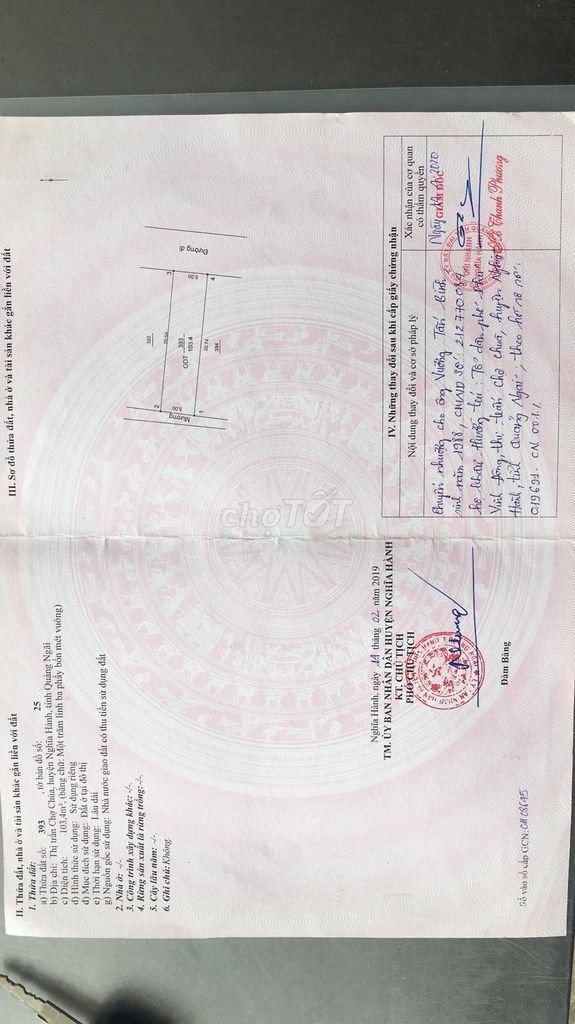 II. Thửa đất, nhà ở và tài sản khác gắn liền với đất
1. Thửa đất:
a) Thửa đất số: 393 , tờ bản đồ số: 25
b) Địa chỉ: Thị trấn Chợ Chùa, huyện Nghĩa Hành, tỉnh Quảng Ngãi
c) Diện tích: 103,4m², (bằng chữ: Một trăm linh ba phẩy bốn mét vuông)
d) Hình thức sử dụng: Sử dụng riêng
đ) Mục đích sử dụng: Đất ở tại đô thị
e) Thời hạn sử dụng: Lâu dài
g) Nguồn gốc sử dụng: Nhà nước giao đất có thu tiền sử dụng đất
2. Nhà ở: -/-
3. Công trình xây dựng khác: -/-
4. Rừng sản xuất là rừng trồng:-/-.
5. Cây lâu năm: -/-
6. Ghi chú:Không.
Nghĩa Hành, ngày 19 tháng 02 năm 2019
TM. ỦY BAN NHÂN DÂN HUYỆN NGHĨA HÀNH
KT. CHỦ TỊCH
PHÓ CHỦ TỊCH
Đàm Bàng
Số vào sổ cấp GCN: CH 08615
III. Sơ đồ thửa đất, nhà ở và tài sản khác gắn liền với đất
Đường đi
Mương
392
2
3
5.00
393
ODT 103.4
5.00
20.74
1
4
394
choTỐT
IV. Những thay đổi sau khi cấp giấy chứng nhận
Nội dung thay đổi và cơ sở pháp lý
Xác nhận của cơ quan
có thẩm quyền
Chuyển nhượng cho ông Vương Tấn Bình
sinh năm 1988, CMND số: 212770084
hộ khẩu thường trú: Tổ dân phố Phú
Vinh Đông, thị trấn Chợ Chùa, huyện Nghĩa
Hành, tỉnh Quảng Ngãi, theo hồ sơ số:
019691. CN 001./.
2020
GIÁM ĐỐC
Thanh Phương